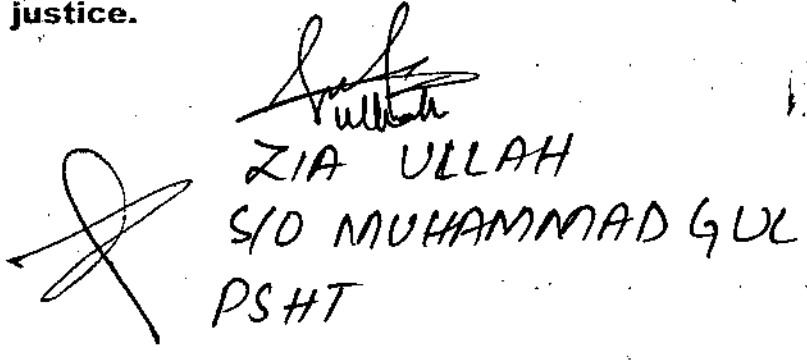 justice.
ullah
ZIA ULLAH
S/O MUHAMMAD GUL
PSHT